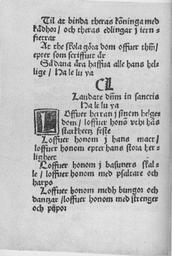 Til at binda theras konunga med
kädhor/ och theras edlingar i iern-
fietrar
At the skola göra dom offuer thm/
epter som scriffuit är
Sådana ära haffua alle hans hel-
lige/ Ha le lu ya
CL
Laudate dnm in sanctis
Ha le lu ya
Loffuer herran i sinem helge
dom/ loffuer honom vthi hans
starkhetz feste
Loffuer honom j hans mact/
loffuer honom epter hans stora her-
ligheet
Loffuer honom j basuners skal-
le/ loffuer honom med psaltare och
harpo
Loffuer honom medh bungor och
dantzar/ loffuer honom med strenger
och pijpor